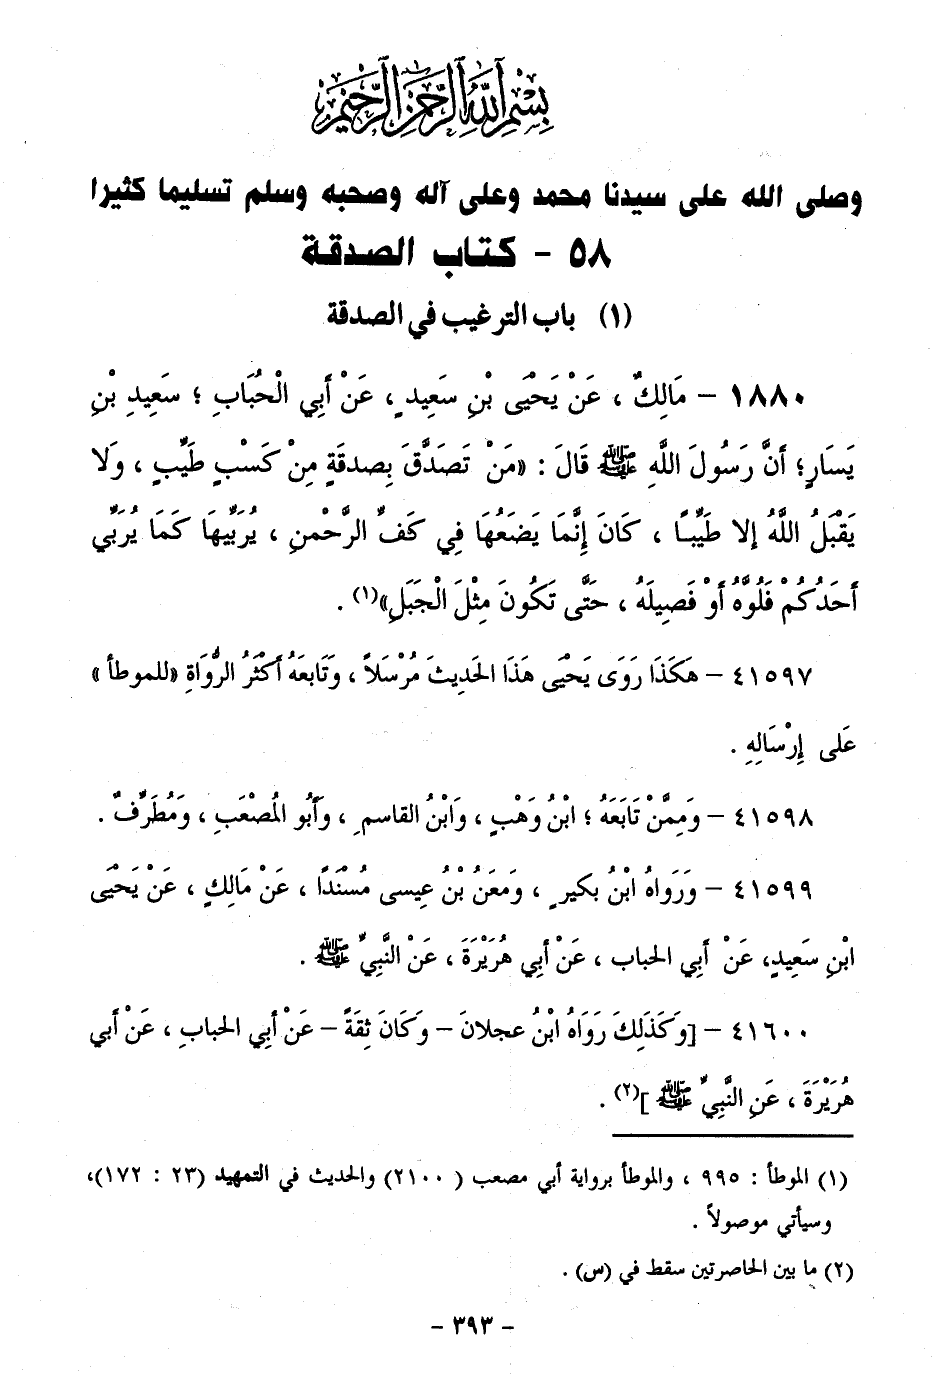 بِسْمِ اللَّهِ الرَّحْمَنِ الرَّحِيمِ
وصلى الله على سيدنا محمد وعلى آله وصحبه وسلم تسليما كثيرا
٥٨ - كتاب الصدقة
(١) باب الترغيب في الصدقة
١٨٨٠ – مَالِكٌ ، عَنْ يَحْيَى بْنِ سَعِيدٍ ، عَنْ أَبِي الْحُبَابِ ؛ سَعِيدِ بْنِ
يَسَارٍ؛ أَنَّ رَسُولَ اللَّهِ ﷺ قَالَ : «مَنْ تَصَدَّقَ بِصدقَةٍ مِنْ كَسْبٍ طَيِّبٍ ، وَلَا
يَقْبَلُ اللَّهُ إلا طَيِّبًا ، كَانَ إِنَّمَا يَضَعُهَا فِي كَفِّ الرَّحْمنِ ، يُرَبِّيهَا كَمَا يُرَبِّي
أَحَدُكُمْ فَلُوَّهُ أَوْ فَصِيلَهُ ، حَتَّى تَكُونَ مِثْلَ الْجَبَلِ»(١) .
٤١٥٩٧ – هَكَذَا رَوَى يَحْيَى هَذَا الحَدِيثَ مُرْسَلاً ، وَتَابَعَهُ أَكْثَرُ الرُّوَاةِ «للموطأ »
عَلى إِرْسَالِهِ .
٤١٥٩٨ – وَمِمَّنْ تَابَعَهُ ؛ ابْنُ وَهْبٍ ، وَابْنُ القاسمِ ، وَأَبُو المُصْعَبِ ، وَمُطَرِّفٌ .
٤١٥٩٩ – وَرَوَاهُ ابْنُ بكيرٍ ، وَمَعَنُ بْنُ عِيسى مُسْنَدًا ، عَنْ مَالِكٍ ، عَنْ يَحْيَى
ابْنِ سَعِيدٍ، عَنْ أَبِي الحباب ، عَنْ أَبِي هُرَيْرَةَ ، عَنْ النَّبِيِّ ﷺ .
٤١٦٠٠ – [وَكَذَلِكَ رَوَاهُ ابْنُ عجلانَ – وَكَانَ ثِقَةً – عَنْ أَبِي الحبابِ ، عَنْ أَبي
هُرَيْرَةَ ، عَنِ النَّبِيِّ ﷺ ](٢) .
(١) الموطأ : ٩٩٥ ، والموطأ برواية أبي مصعب ( ٢١٠٠) والحديث في التمهيد (٢٣ : ١٧٢)،
وسيأتي موصولاً .
(٢) ما بين الحاصرتين سقط في (س) .
- ٣٩٣ -